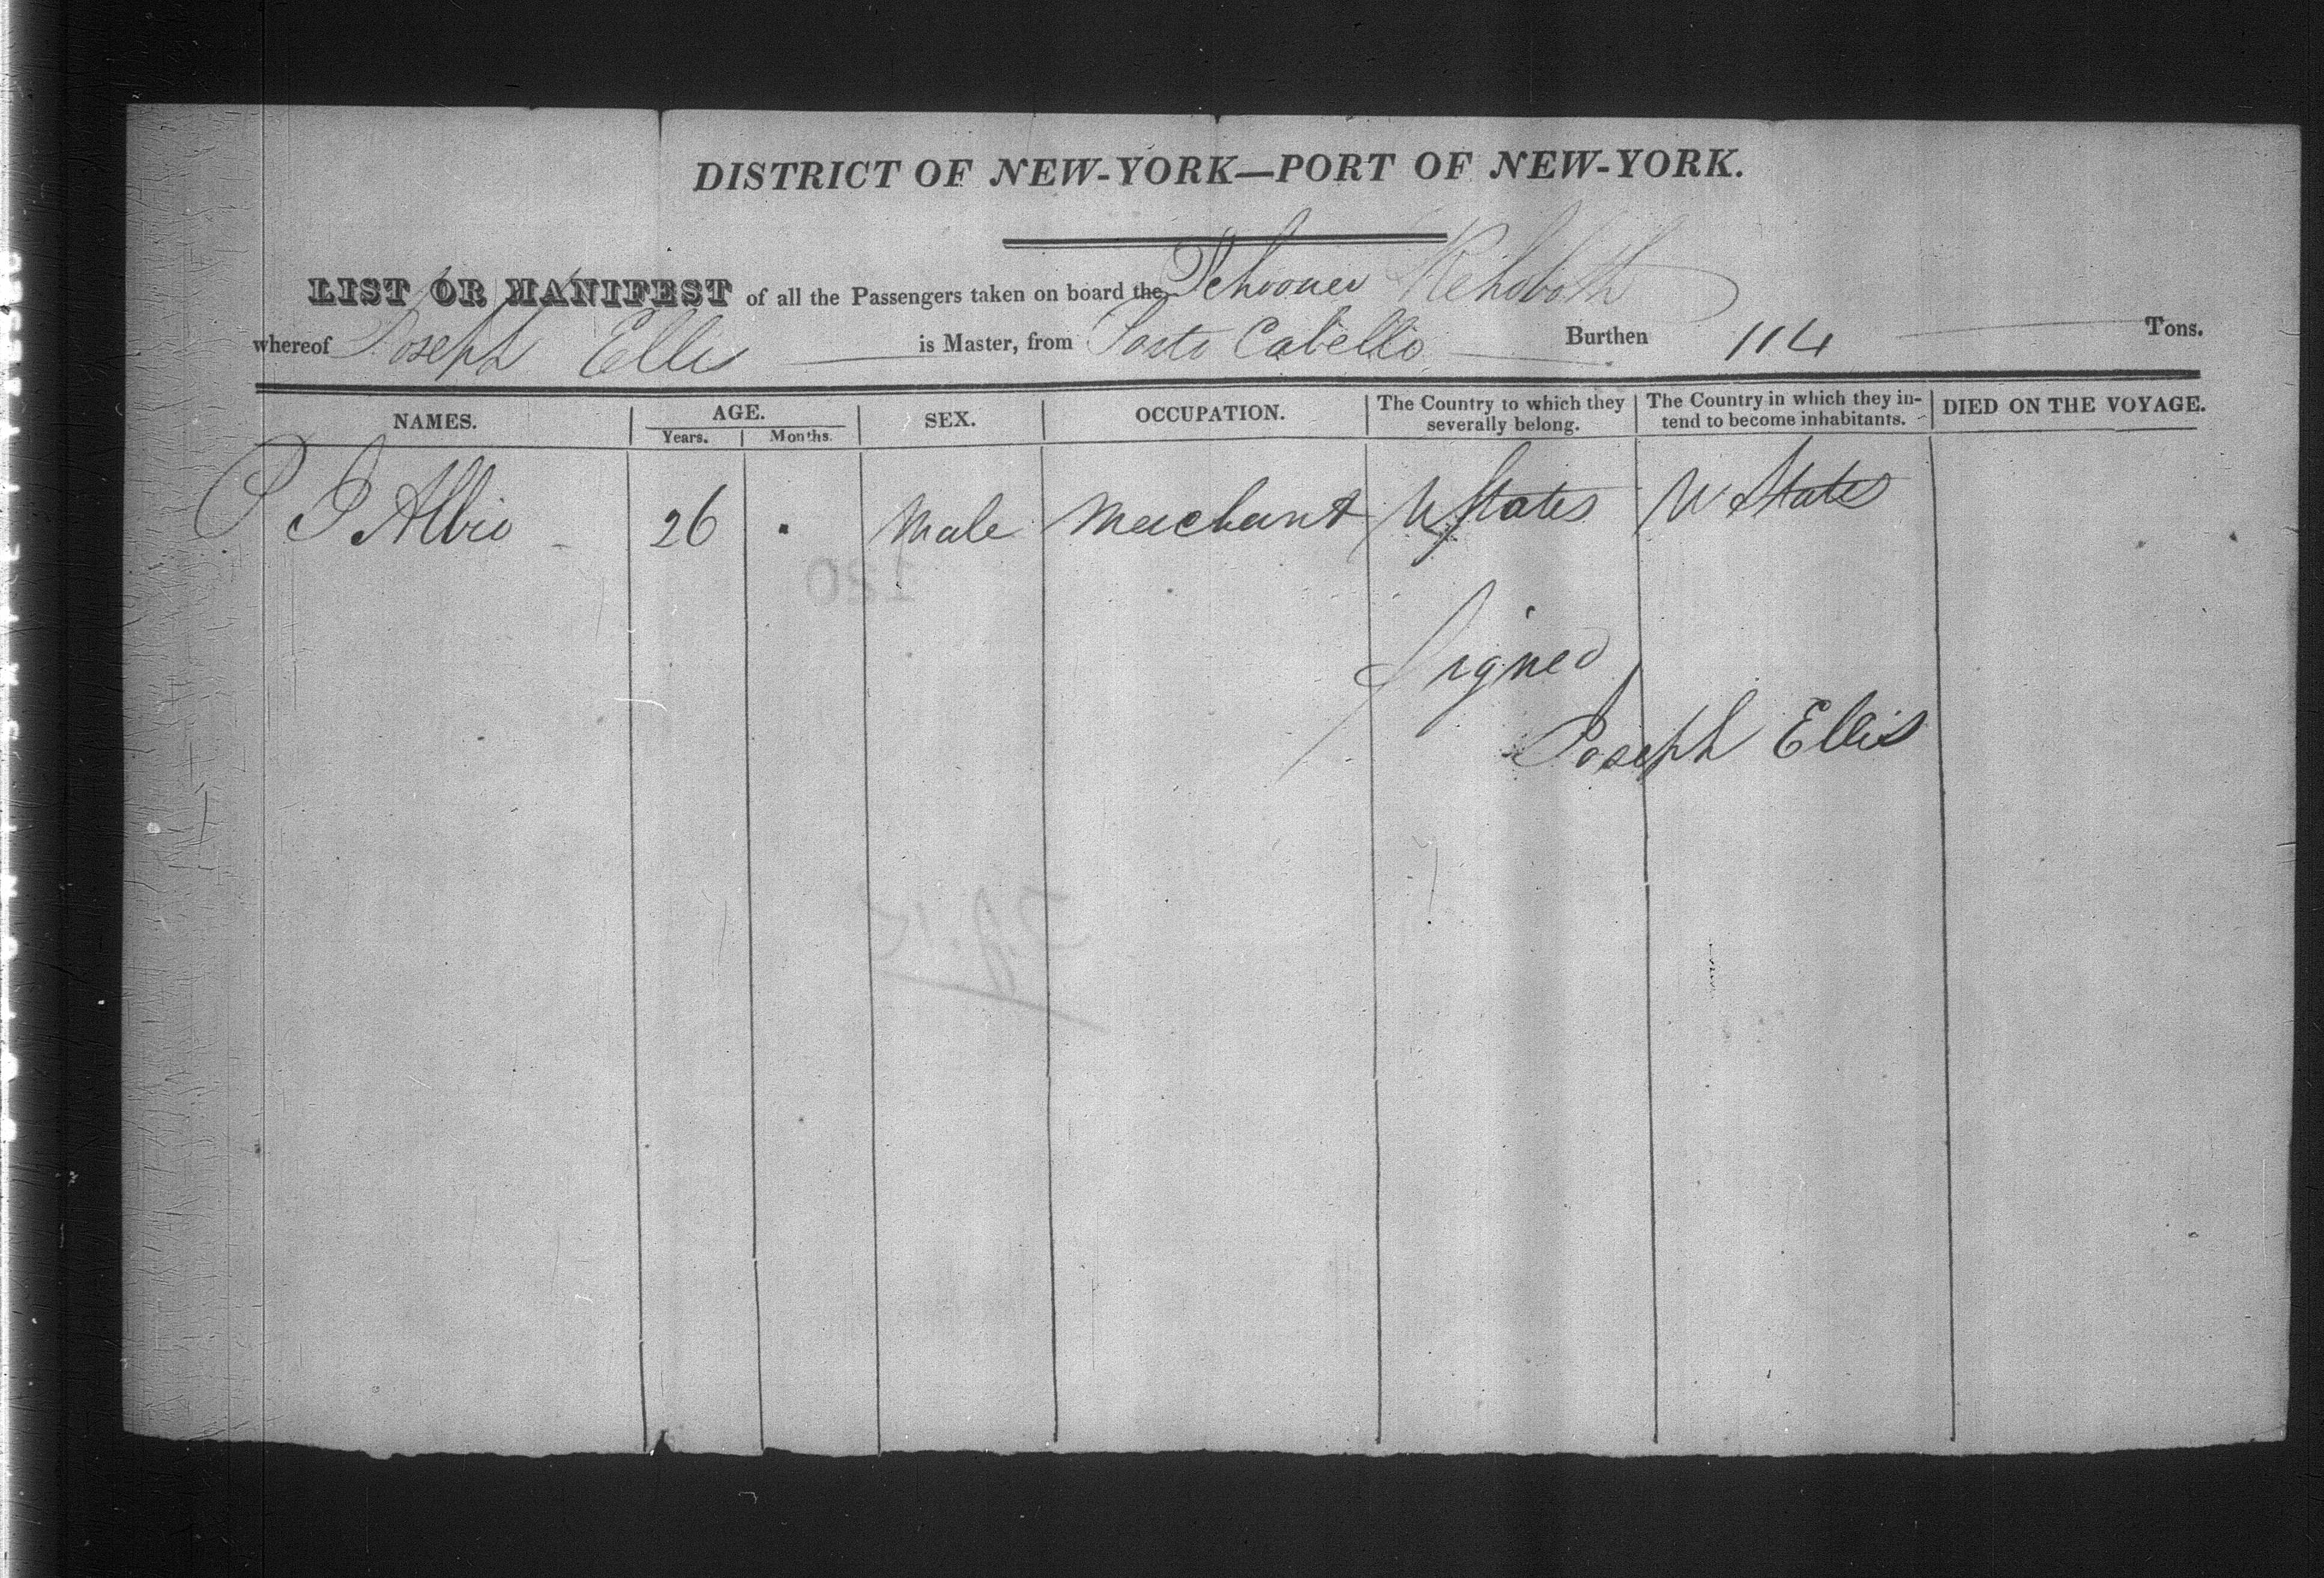 DISTRICT OF NEW-YORK—PORT OF NEW-YORK.
LIST OR MANIFEST of all the Passengers taken on board the Schooner Rehoboth
whereof Joseph Ellis is Master, from Porto Cabello Burthen 114 Tons.
NAMES. AGE. SEX. OCCUPATION. The Country to which they severally belong. The Country in which they intend to become inhabitants. DIED ON THE VOYAGE.
Years. Months.
26 Male Merchant U States U States
Signed
Joseph Ellis